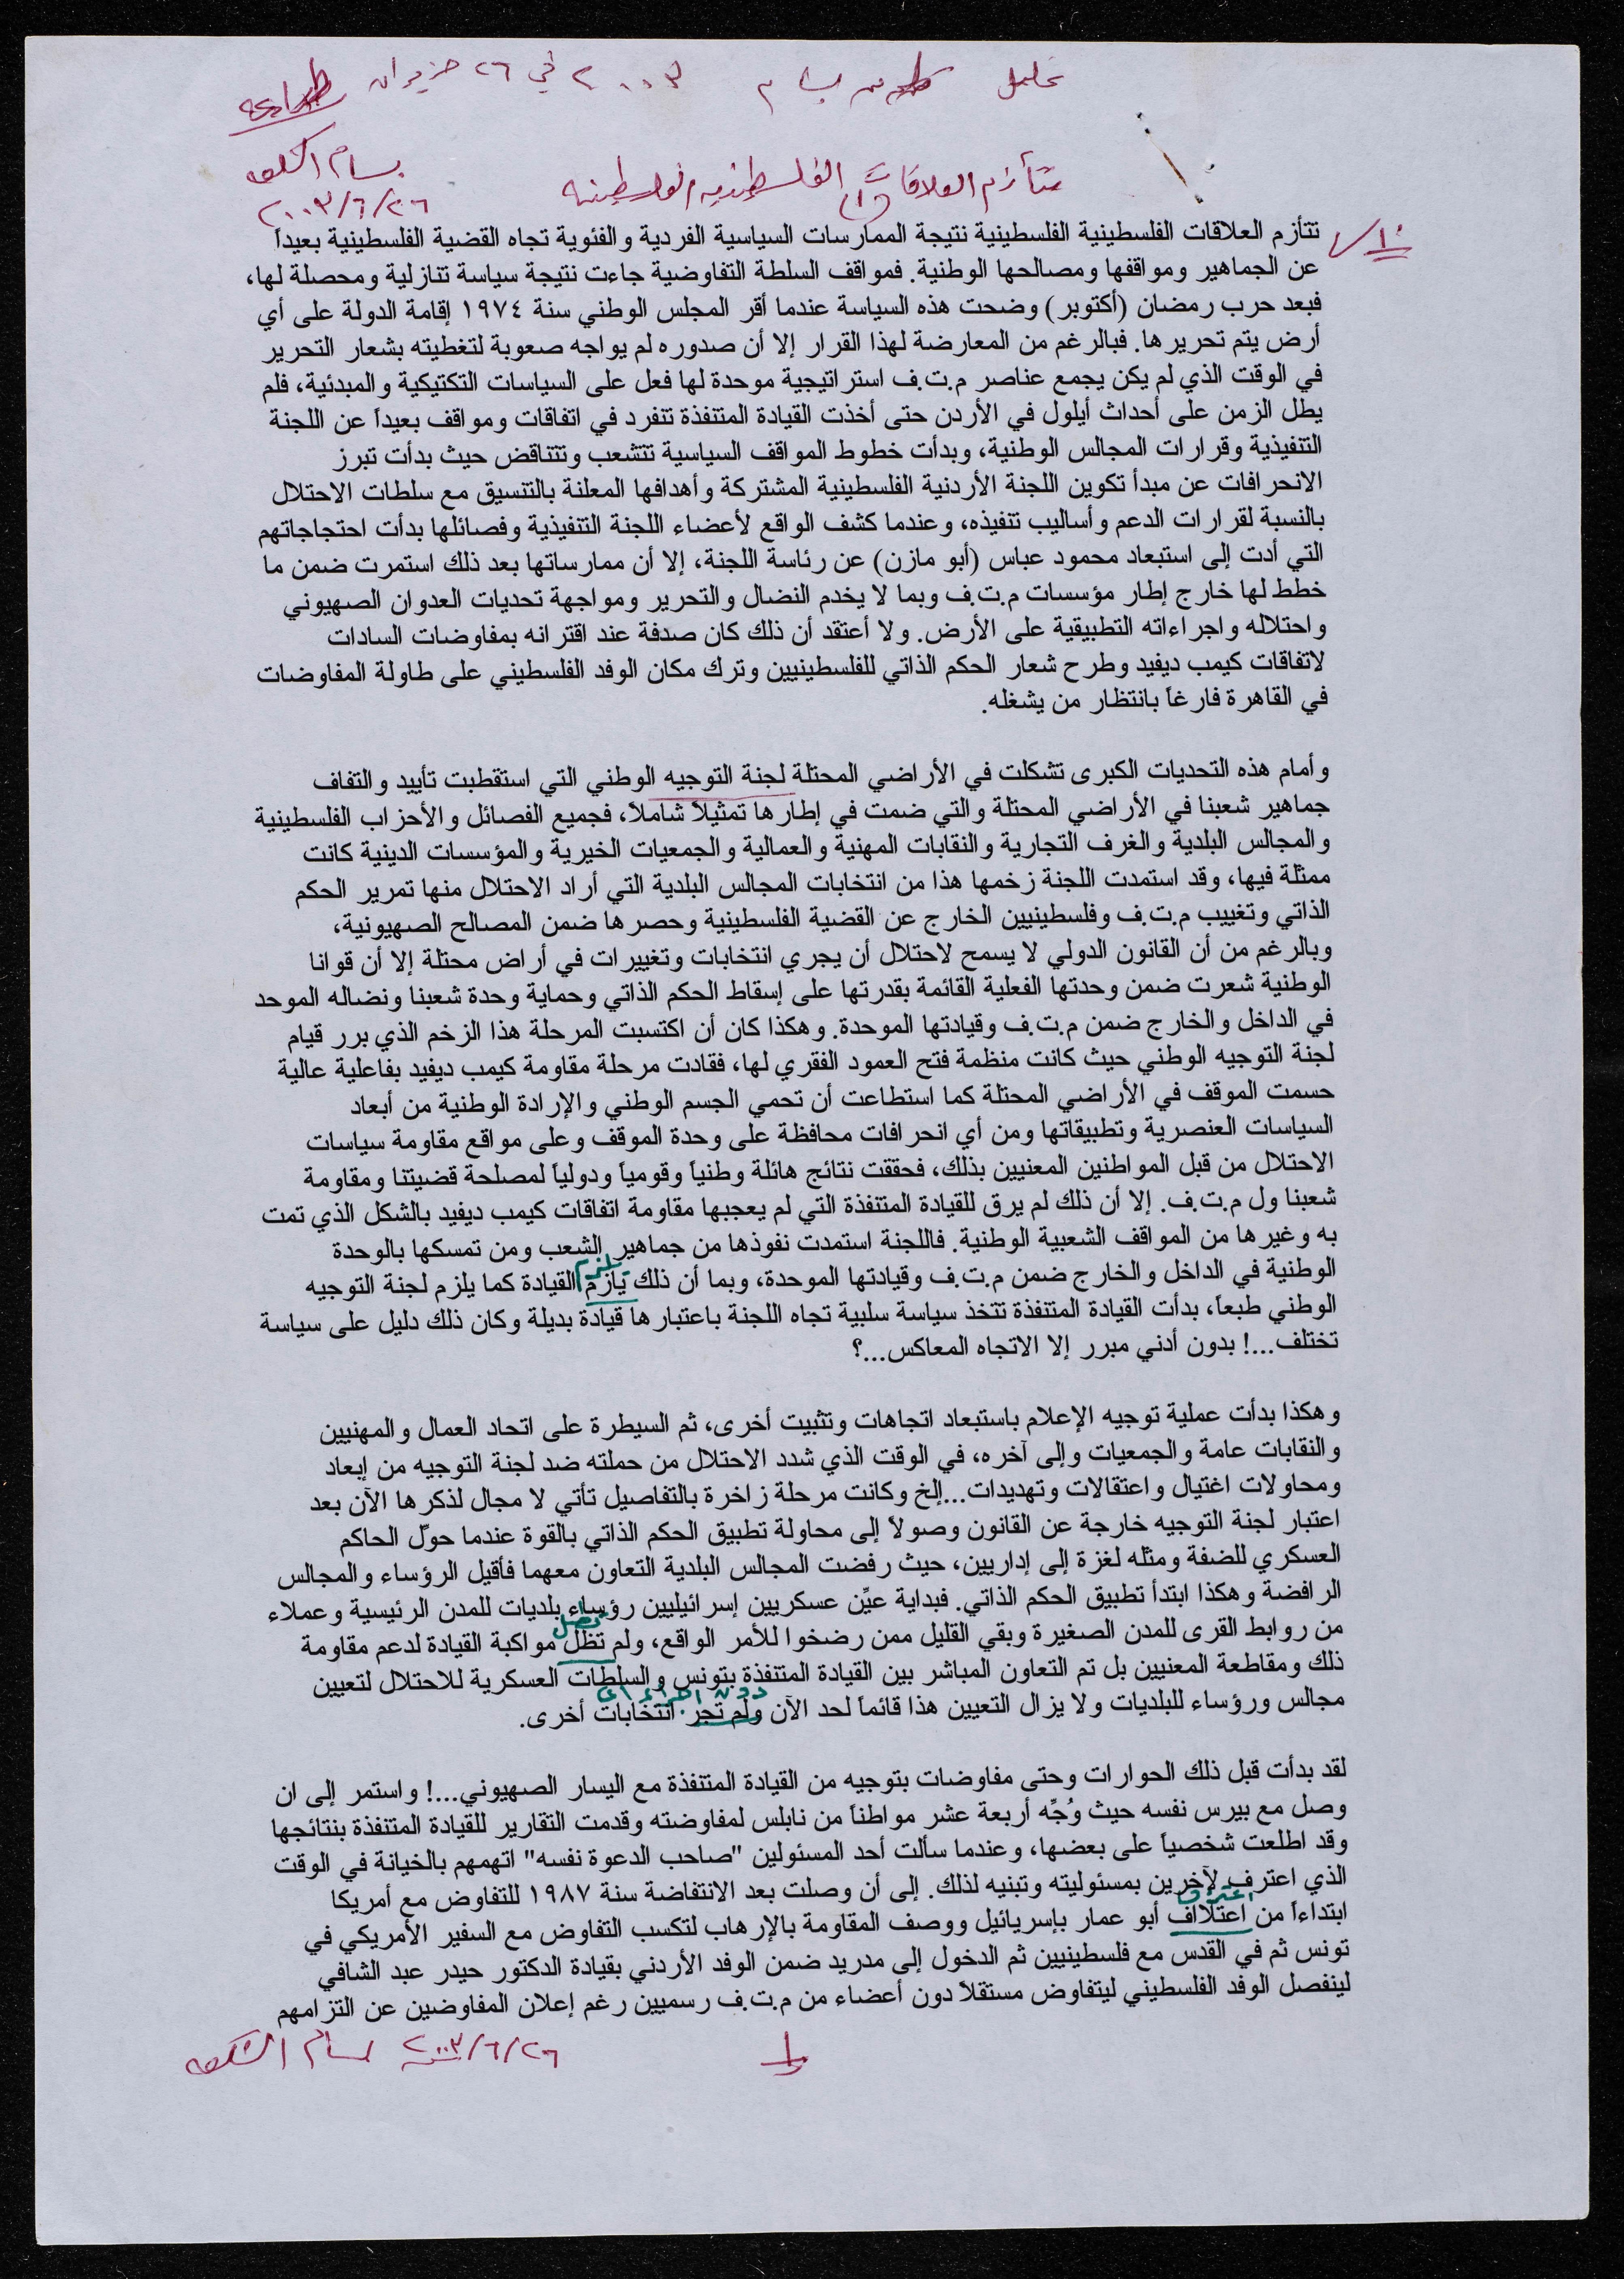 تحليل بسام ٢٠٠٣ في ٢٦ حزيران
طباعة
بسام الشكعة
٢٠٠٣/٦/٢٦
تتأزم العلاقات الفلسطينية الفلسطينية
(١)
تتأزم العلاقات الفلسطينية الفلسطينية نتيجة الممارسات السياسية الفردية والفئوية تجاه القضية الفلسطينية بعيداً
عن الجماهير ومواقفها ومصالحها الوطنية. فمواقف السلطة التفاوضية جاءت نتيجة سياسة تنازلية ومحصلة لها،
فبعد حرب رمضان (أكتوبر) وضحت هذه السياسة عندما أقر المجلس الوطني سنة ١٩٧٤ إقامة الدولة على أي
أرض يتم تحريرها. فبالرغم من المعارضة لهذا القرار إلا أن صدوره لم يواجه صعوبة لتغطيته بشعار التحرير
في الوقت الذي لم يكن يجمع عناصر م.ت.ف استراتيجية موحدة لها فعل على السياسات التكتيكية والمبدئية، فلم
يطل الزمن على أحداث أيلول في الأردن حتى أخذت القيادة المتنفذة تتفرد في اتفاقات ومواقف بعيداً عن اللجنة
التنفيذية وقرارات المجالس الوطنية، وبدأت خطوط المواقف السياسية تتشعب وتتناقض حيث بدأت تبرز
الانحرافات عن مبدأ تكوين اللجنة الأردنية الفلسطينية المشتركة وأهدافها المعلنة بالتنسيق مع سلطات الاحتلال
بالنسبة لقرارات الدعم وأساليب تنفيذه، وعندما كشف الواقع لأعضاء اللجنة التنفيذية وفصائلها بدأت احتجاجاتهم
التي أدت إلى استبعاد محمود عباس (أبو مازن) عن رئاسة اللجنة، إلا أن ممارساتها بعد ذلك استمرت ضمن ما
خطط لها خارج إطار مؤسسات م.ت.ف وبما لا يخدم النضال والتحرير ومواجهة تحديات العدوان الصهيوني
واحتلاله واجراءاته التطبيقية على الأرض. ولا أعتقد أن ذلك كان صدفة عند اقترانه بمفاوضات السادات
لاتفاقات كيمب ديفيد وطرح شعار الحكم الذاتي للفلسطينيين وترك مكان الوفد الفلسطيني على طاولة المفاوضات
في القاهرة فارغاً بانتظار من يشغله.
وأمام هذه التحديات الكبرى تشكلت في الأراضي المحتلة لجنة التوجيه الوطني التي استقطبت تأييد والتفاف
جماهير شعبنا في الأراضي المحتلة والتي ضمت في إطارها تمثيلاً شاملاً، فجميع الفصائل والأحزاب الفلسطينية
والمجالس البلدية والغرف التجارية والنقابات المهنية والعمالية والجمعيات الخيرية والمؤسسات الدينية كانت
ممثلة فيها، وقد استمدت اللجنة زخمها هذا من انتخابات المجالس البلدية التي أراد الاحتلال منها تمرير الحكم
الذاتي وتغييب م.ت.ف وفلسطينيين الخارج عن القضية الفلسطينية وحصرها ضمن المصالح الصهيونية،
وبالرغم من أن القانون الدولي لا يسمح لاحتلال أن يجري انتخابات وتغييرات في أراض محتلة إلا أن قوانا
الوطنية شعرت ضمن وحدتها الفعلية القائمة بقدرتها على إسقاط الحكم الذاتي وحماية وحدة شعبنا ونضاله الموحد
في الداخل والخارج ضمن م.ت.ف وقيادتها الموحدة. وهكذا كان أن اكتسبت المرحلة هذا الزخم الذي برر قيام
لجنة التوجيه الوطني حيث كانت منظمة فتح العمود الفقري لها، فقادت مرحلة مقاومة كيمب ديفيد بفاعلية عالية
حسمت الموقف في الأراضي المحتلة كما استطاعت أن تحمي الجسم الوطني والإرادة الوطنية من أبعاد
السياسات العنصرية وتطبيقاتها ومن أي انحرافات محافظة على وحدة الموقف وعلى مواقع مقاومة سياسات
الاحتلال من قبل المواطنين المعنيين بذلك، فحققت نتائج هائلة وطنياً وقومياً ودولياً لمصلحة قضيتنا ومقاومة
شعبنا ول م.ت.ف. إلا أن ذلك لم يرق للقيادة المتنفذة التي لم يعجبها مقاومة اتفاقات كيمب ديفيد بالشكل الذي تمت
به وغيرها من المواقف الشعبية الوطنية. فاللجنة استمدت نفوذها من جماهير الشعب ومن تمسكها بالوحدة
يلزم
الوطنية في الداخل والخارج ضمن م.ت.ف وقيادتها الموحدة، وبما أن ذلك يازم القيادة كما يلزم لجنة التوجيه
الوطني طبعاً، بدأت القيادة المتنفذة تتخذ سياسة سلبية تجاه اللجنة باعتبارها قيادة بديلة وكان ذلك دليل على سياسة
تختلف...! بدون أدني مبرر إلا الاتجاه المعاكس...؟
وهكذا بدأت عملية توجيه الإعلام باستبعاد اتجاهات وتثبيت أخرى، ثم السيطرة على اتحاد العمال والمهنيين
والنقابات عامة والجمعيات وإلى آخره، في الوقت الذي شدد الاحتلال من حملته ضد لجنة التوجيه من إبعاد
ومحاولات اغتيال واعتقالات وتهديدات...إلخ وكانت مرحلة زاخرة بالتفاصيل تأتي لا مجال لذكرها الآن بعد
اعتبار لجنة التوجيه خارجة عن القانون وصولاً إلى محاولة تطبيق الحكم الذاتي بالقوة عندما حوّل الحاكم
العسكري للضفة ومثله لغزة إلى إداريين، حيث رفضت المجالس البلدية التعاون معهما فأقيل الرؤساء والمجالس
الرافضة وهكذا ابتدأ تطبيق الحكم الذاتي. فبداية عيِّن عسكريين إسرائيليين رؤساء بلديات للمدن الرئيسية وعملاء
تصل
من روابط القرى للمدن الصغيرة وبقي القليل ممن رضخوا للأمر الواقع، ولم تظل مواكبة القيادة لدعم مقاومة
ذلك ومقاطعة المعنيين بل تم التعاون المباشر بين القيادة المتنفذة بتونس والسلطات العسكرية للاحتلال لتعيين
دون اجراء اي
مجالس ورؤساء للبلديات ولا يزال التعيين هذا قائماً لحد الآن ولم تجر انتخابات أخرى.
لقد بدأت قبل ذلك الحوارات وحتى مفاوضات بتوجيه من القيادة المتنفذة مع اليسار الصهيوني...! واستمر إلى ان
وصل مع بيرس نفسه حيث وُجِّه أربعة عشر مواطناً من نابلس لمفاوضته وقدمت التقارير للقيادة المتنفذة بنتائجها
وقد اطلعت شخصياً على بعضها، وعندما سألت أحد المسئولين "صاحب الدعوة نفسه" اتهمهم بالخيانة في الوقت
الذي اعترف لآخرين بمسئوليته وتبنيه لذلك. إلى أن وصلت بعد الانتفاضة سنة ١٩٨٧ للتفاوض مع أمريكا
اعتراف
ابتداءاً من اعتلااف أبو عمار بإسريائيل ووصف المقاومة بالإرهاب لتكسب التفاوض مع السفير الأمريكي في
تونس ثم في القدس مع فلسطينيين ثم الدخول إلى مدريد ضمن الوفد الأردني بقيادة الدكتور حيدر عبد الشافي
لينفصل الوفد الفلسطيني ليتفاوض مستقلاً دون أعضاء من م.ت.ف رسميين رغم إعلان المفاوضين عن التزامهم
١
٢٠٠٣/٦/٢٦ بسام الشكعة